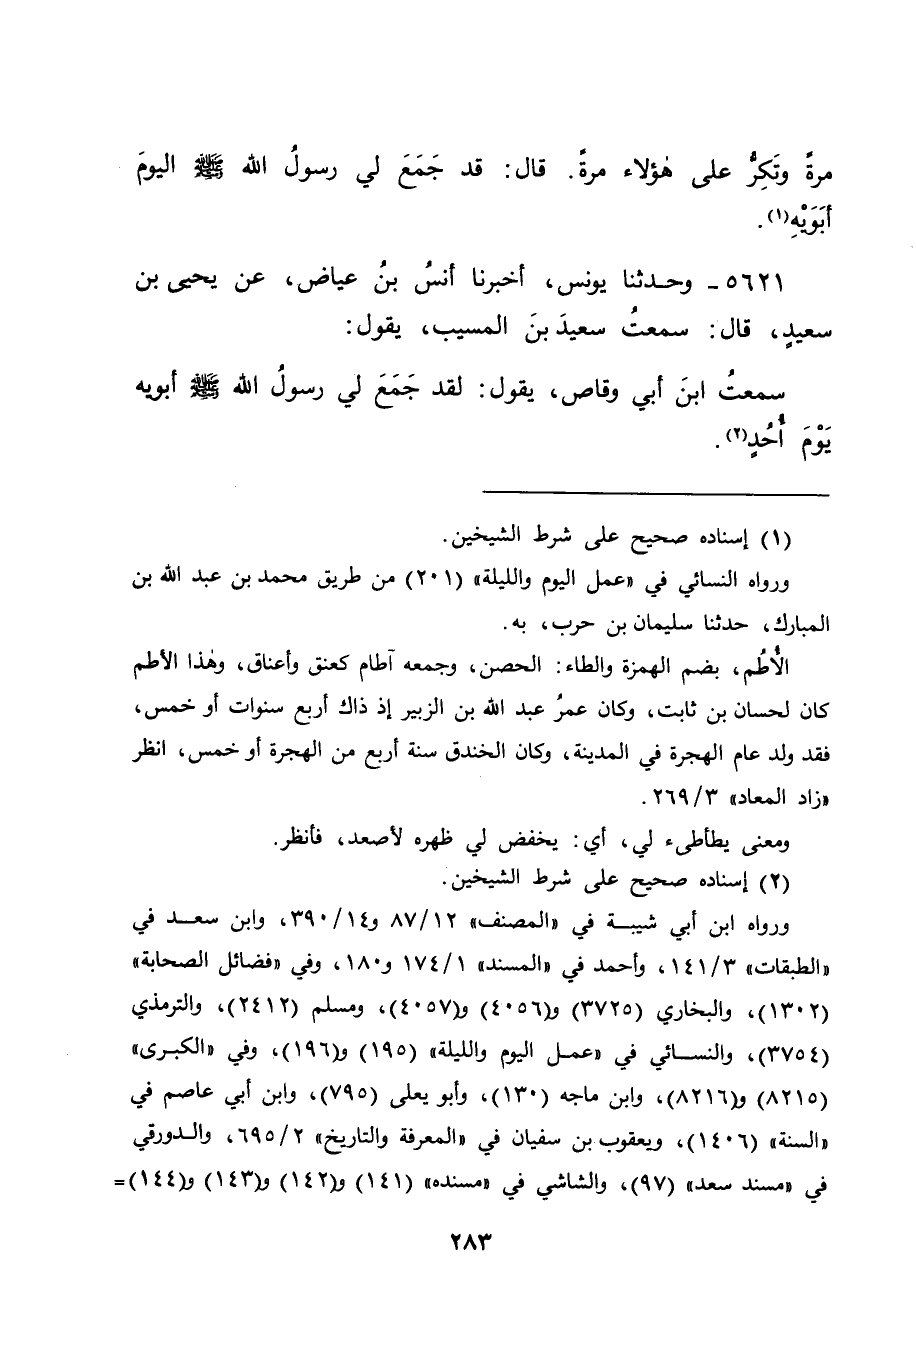 مرةً وتَكِرُّ على هٰؤلاء مرةً. قال: قد جَمَعَ لي رسولُ الله ﷺ اليومَ
أبَوَيْهِ(١).
٥٦٢١ ـ وحـدثنا يونس، أخبرنا أنسُ بنُ عياض، عن يحيى بن
سعيدٍ، قال: سمعتُ سعيدَ بنَ المسيب، يقول:
سمعتُ ابنَ أبي وقاص، يقول: لقد جَمَعَ لي رسولُ الله ﷺ أبويه
يَوْمَ أُحُدٍ(٢).
(١) إسناده صحيح على شرط الشيخين.
ورواه النسائي في «عمل اليوم والليلة» (٢٠١) من طريق محمد بن عبد الله بن
المبارك، حدثنا سليمان بن حرب، به.
الأُطُم، بضم الهمزة والطاء: الحصن، وجمعه آطام كعنق وأعناق، وهٰذا الأطم
كان لحسان بن ثابت، وكان عمرُ عبد الله بن الزبير إذ ذاك أربع سنوات أو خمس،
فقد ولد عام الهجرة في المدينة، وكان الخندق سنة أربع من الهجرة أو خمس، انظر
«زاد المعاد» ٢٦٩/٣.
ومعنى يطأطىء لي، أي: يخفض لي ظهره لأصعد، فأنظر.
(٢) إسناده صحيح على شرط الشيخين.
ورواه ابن أبي شيبـة في «المصنف» ٨٧/١٢ و٣٩٠/١٤، وابن سعـد في
«الطبقات» ١٤١/٣، وأحمد في «المسند» ١٧٤/١ و١٨٠، وفي «فضائل الصحابة»
(١٣٠٢)، والبخاري (٣٧٢٥) و(٤٠٥٦) و(٤٠٥٧)، ومسلم (٢٤١٢)، والترمذي
(٣٧٥٤)، والنسـائي في «عمـل اليوم والليلة» (١٩٥) و(١٩٦)، وفي «الكبـرى»
(٨٢١٥) و(٨٢١٦)، وابن ماجه (١٣٠)، وأبو يعلى (٧٩٥)، وابن أبي عاصم في
«السنة» (١٤٠٦)، ويعقوب بن سفيان في «المعرفة والتاريخ» ٦٩٥/٢، والـدورقي
في «مسند سعد» (٩٧)، والشاشي في «مسنده» (١٤١) و(١٤٢) و(١٤٣) و(١٤٤)=
٢٨٣